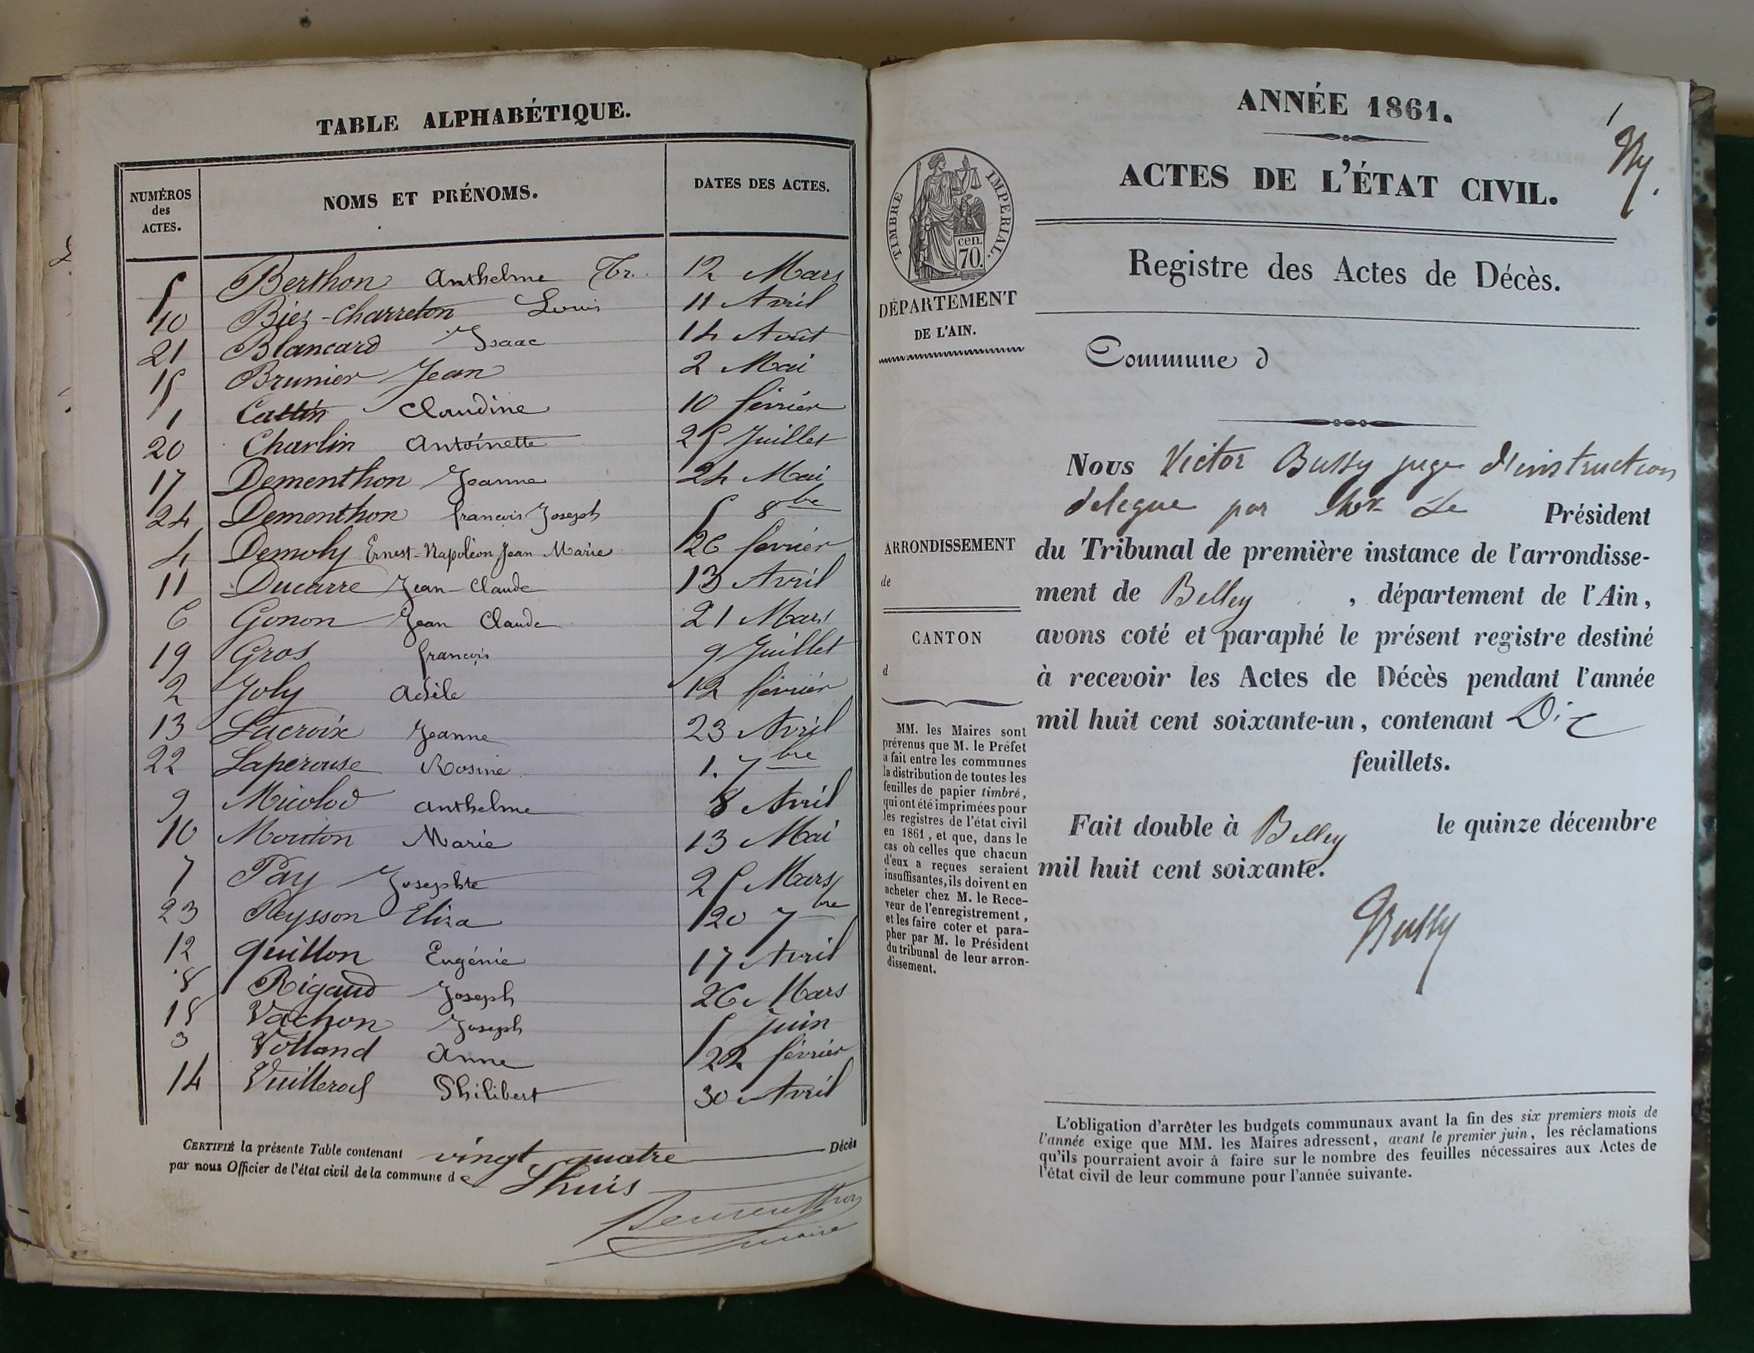 TABLE ALPHABÉTIQUE.
NUMÉROS des ACTES. NOMS ET PRÉNOMS. DATES DES ACTES.
5 Berthon Anthelme Fr. 12 Mars
10 Biez-Charreton Louis 11 Avril
21 Blancard Isaac 14 Août
15 Brunier Jean 2 Mai
1 Cattin Claudine 10 février
20 Charlin Antoinette 25 Juillet
17 Dementhon Jeanne 24 Mai
24 Dementhon françois Joseph 5 8bre
4 Demoly Ernest-Napoléon Jean Marie 26 février
11 Ducarre Jean-Claude 13 Avril
6 Gonon Jean Claude 21 Mars
19 Gros françois 9 Juillet
2 Joly Adèle 12 février
13 Lacroix Jeanne 23 Avril
22 Laperouse Rosine 1. 7bre
9 Micolod Anthelme 8 Avril
16 Mouton Marie 13 Mai
7 Pay Josephte 25 Mars
23 Peysson Eliza 20 7bre
12 quillon Eugénie 17 Avril
8 Rigaud Joseph 26 Mars
18 Vachon Joseph 5 Juin
3 Volland Anne 22 février
14 Vuillerod Philibert 30 Avril
CERTIFIÉ la présente Table contenant vingt quatre Décès
par nous Officier de l'état civil de la commune de Lhuis
Dementhon
maire
1
ANNÉE 1861.
ACTES DE L'ÉTAT CIVIL.
Registre des Actes de Décès.
TIMBRE IMPÉRIAL.
70 cen.
DÉPARTEMENT
DE L'AIN.
Commune d
Nous Victor Bussy juge d'instruction
delegue par Le Président
du Tribunal de première instance de l'arrondisse-
ment de Belley , département de l'Ain,
avons coté et paraphé le présent registre destiné
à recevoir les Actes de Décès pendant l'année
mil huit cent soixante-un, contenant Dix
feuillets.
Fait double à Belley le quinze décembre
mil huit cent soixante.
Bussy
ARRONDISSEMENT
de
CANTON
d
MM. les Maires sont
prévenus que M. le Préfet
a fait entre les communes
la distribution de toutes les
feuilles de papier timbré,
qui ont été imprimées pour
les registres de l'état civil
en 1861, et que, dans le
cas où celles que chacun
d'eux a reçues seraient
insuffisantes, ils doivent en
acheter chez M. le Rece-
veur de l'enregistrement,
et les faire coter et para-
pher par M. le Président
du tribunal de leur arron-
dissement.
L'obligation d'arrêter les budgets communaux avant la fin des six premiers mois de
l'année exige que MM. les Maires adressent, avant le premier juin, les réclamations
qu'ils pourraient avoir à faire sur le nombre des feuilles nécessaires aux Actes de
l'état civil de leur commune pour l'année suivante.